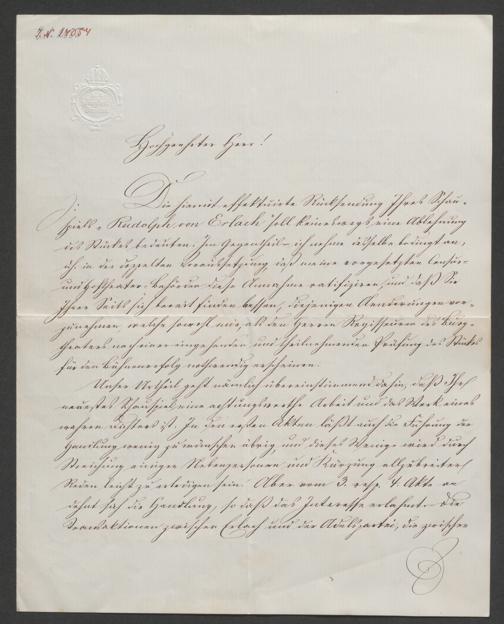 Hochgeehrter Herr!
Die hiermit effektuirte Rücksendung Ihres Schau-
spiels „Rudolph von Erlach“ soll keineswegs eine Ablehnung
des Stückes bedeuten. Im Gegentheil – ich nehme dasselbe bedingt an,
d. h. in der doppelten Voraussetzung, daß meine vorgesetzten Censur-
und Hoftheater-Behörden diese Annahme ratifiziren, und daß Sie
Ihrer Seits sich bereit finden lassen, diejenigen Aenderungen vor-
zunehmen, welche sowohl mir, als den Herren Regisseuren des Burg-
theaters nach einer eingehenden und theilnehmenden Prüfung des Stückes
für den Bühnenerfolg nothwendig erscheinen.
Unser Urtheil geht nämlich übereinstimmend dahin, daß Ihr
neuestes Schauspiel eine achtungswerthe Arbeit und das Werk eines
wahren Dichters ist. In den ersten Akten läßt auch die Führung der
Handlung wenig zu wünschen übrig, und dieses Wenige wird durch
Streichung einiger Nebenpersonen und Kürzung allzubreiter
Reden leicht zu erledigen sein. Aber vom 3. resp. 4. Akte an
dehnt sich die Handlung, so daß das Interesse erlahmt. – Die
Transaktionen zwischen Erlach und der Adelspartei, die zwischen